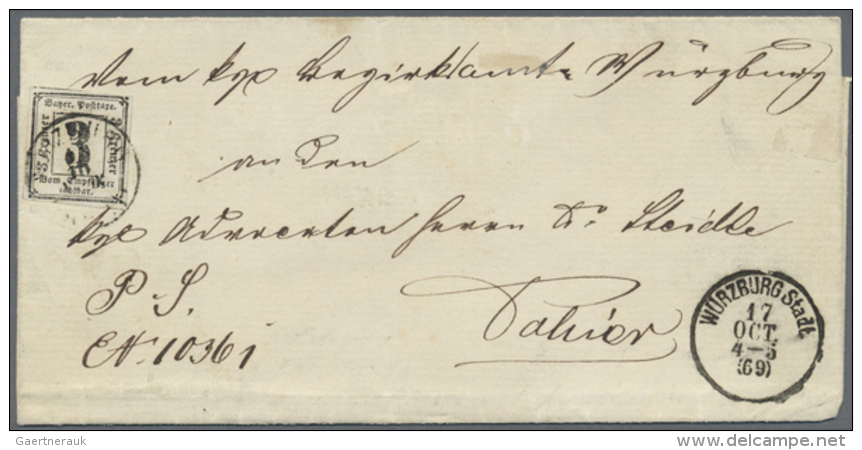 Vom kgl Bezirksamte Würzburg
Bayer. Posttaxe.
3
3 Kreuzer
3 Kreuzer
Vom Empfänger
zahlbar.
an den
kgl Advocaten Herrn Dr Steidle
P. S.
Dahier
EN. 10361
WÜRZBURG Stadt.
17
OCT.
4-5
(69)
Gaertnerauk
delcampe.net